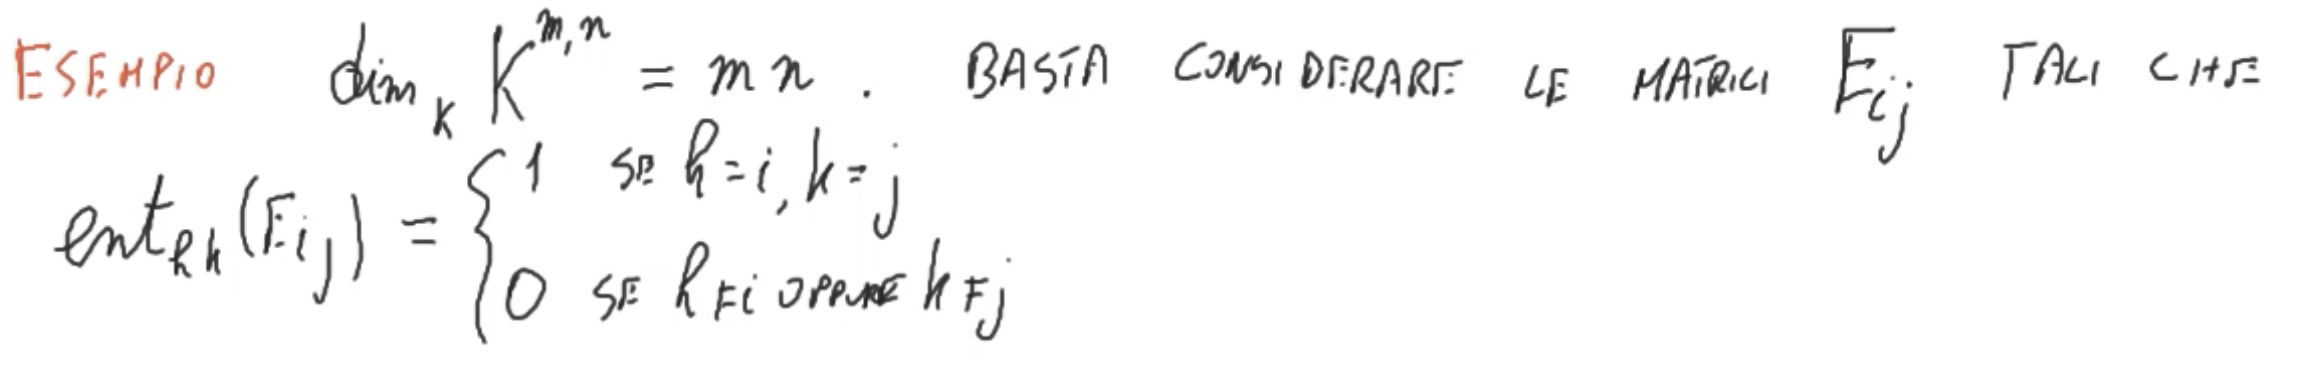 ESEMPIO dim_K K^{m,n} = mn . BASTA CONSIDERARE LE MATRICI E_{ij} TALI CHE
ent_{hk}(E_{ij}) = { 1 SE h=i, k=j
0 SE h≠i OPPURE k≠j